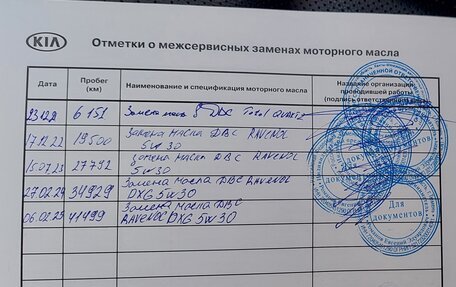 KIA Отметки о межсервисных заменах моторного масла
Дата Пробег (км) Наименование и спецификация моторного масла Название организации проводившей работы (подпись ответственного лица)
6 151 Замена масла ДВС Total Quartz
17.12.22 19500 Замена масла ДВС RAVENOL
5w30
15.07.23 27792 Замена масла ДВС RAVENOL
5w30
27.02.24 34929 Замена масла ДВС RAVENOL
DXG 5w30
06.02.25 41499 Замена масла ДВС
RAVENOL DXG 5w30
Для
документов